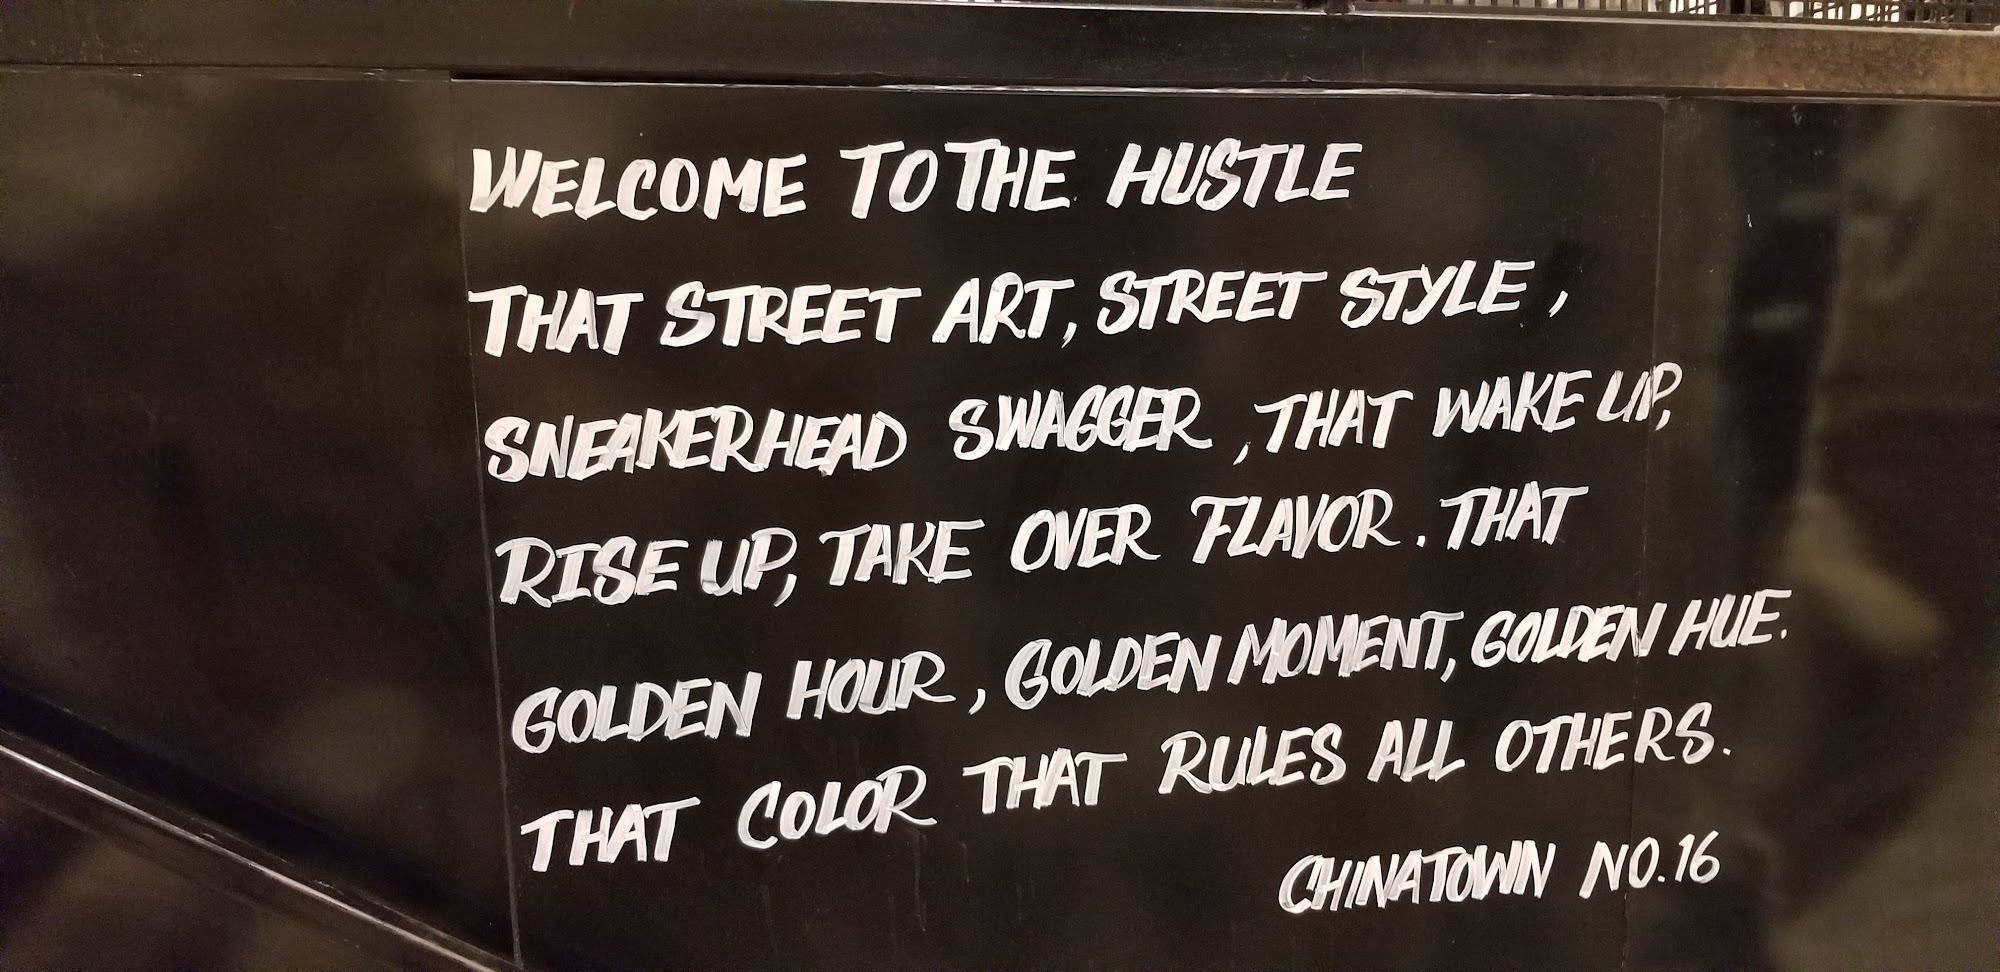 WELCOME TO THE HUSTLE
THAT STREET ART, STREET STYLE,
SNEAKERHEAD SWAGGER, THAT WAKE UP,
RISE UP, TAKE OVER FLAVOR. THAT
GOLDEN HOUR, GOLDEN MOMENT, GOLDEN HUE.
THAT COLOR THAT RULES ALL OTHERS.
CHINATOWN NO.16